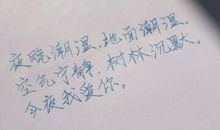 夜晚潮湿,地面潮湿,
空气宁静,树林沉默。
今夜我爱你。